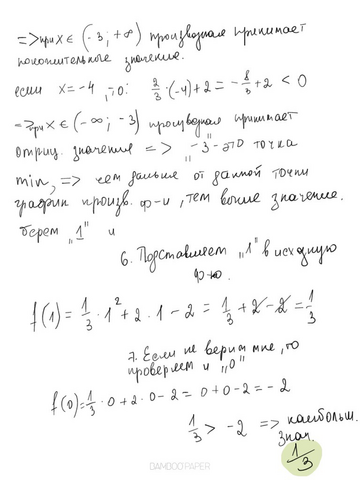 => при x ∈ (-3; +∞) производная принимает
положительное значение.
если x = -4, то: 2/3 · (-4) + 2 = -8/3 + 2 < 0
=> при x ∈ (-∞; -3) производная принимает
отриц. значения => „-3" - это точка
min, => чем дальше от данной точки
график произв. ф-и, тем выше значение.
берем „1" и
6. Подставляем „1" в исходную
ф-ю.
f(1) = 1/3 · 1² + 2 · 1 - 2 = 1/3 + 2 - 2 = 1/3
7. Если не верите мне, то
проверяем и „0"
f(0) = 1/3 · 0 + 2 · 0 - 2 = 0 + 0 - 2 = -2
1/3 > -2 => наибольш.
знач.
1/3
BAMBOO PAPER